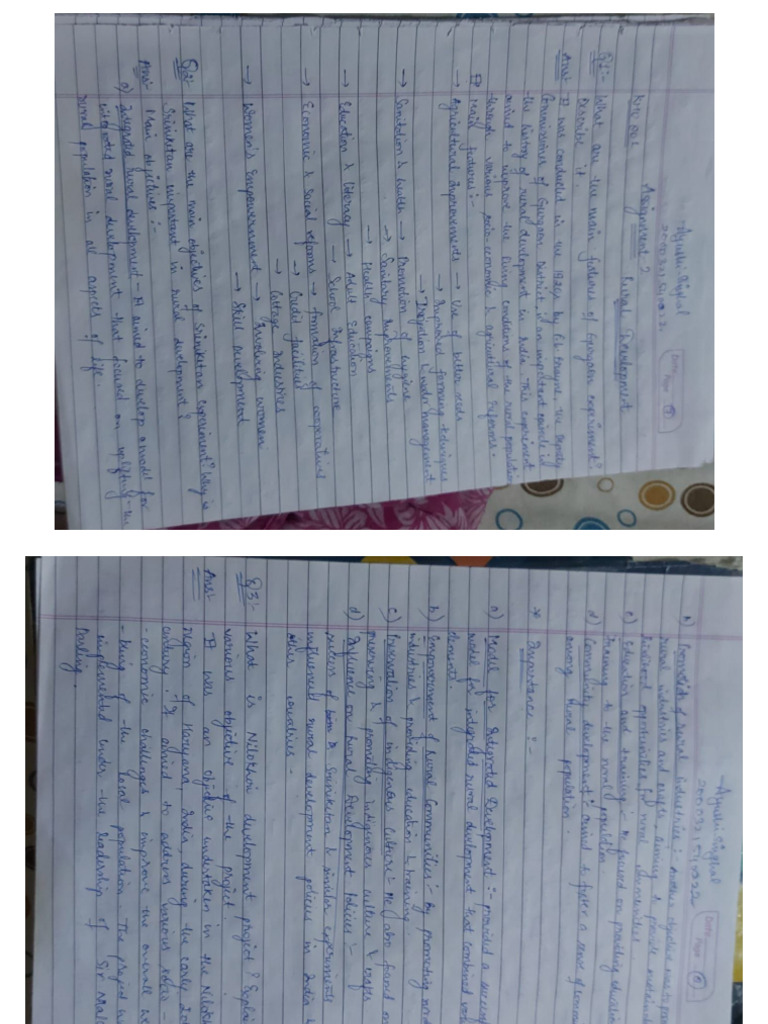 - Ayushi Singhal
Date
Page 1
Assignment 2
Rural Development
Q1:- What are the main features of Gurgaon experiment?
Describe it.
Ans:- It was conducted in the 1920s by F.L. Brayne, the Deputy
Commissioner of Gurgaon District, is an important episode in
the history of rural development in India. This experiment
aimed to improve the living conditions of the rural population
through various socio-economic & agricultural reforms.
Main features:-
→ Agricultural improvements → Use of better seeds
→ Improved farming techniques
→ Irrigation & water management
→ Sanitation & Health → Promotion of hygiene
→ Sanitary improvements
→ Health campaigns
→ Education & literacy → Adult Education
→ School Infrastructure
→ Economic & Social reforms → formation of cooperatives
→ Credit facilities
→ Cottage Industries
→ Women's Empowerment → Involving women
→ Skill development
Q2:- What are the main objectives of Sriniketan experiment? Why is
Sriniketan important in rural development?
Ans:- Main objectives:-
a) Integrated Rural development - It aimed to develop a model for
integrated rural development that focused on uplifting the
rural population in all aspects of life.
- Ayushi Singhal
Date
Page
b) of rural Industries:- Another objective was to
rural industries and crafts, aiming to provide
livelihood opportunities for rural communities.
c) Education and training:- He focused on providing education
training to the rural population.
d) Community development:- aimed to foster a sense of
among rural population.
* Importance:-
a) Model for Integrated Development:- provided a
model for integrated rural development that combined
elements.
b) Empowerment of Rural Communities:- By promoting
industries & providing education & training.
c) Preservation of indigenous Culture:- He also focused on
preserving & promoting indigenous culture & crafts
d) Influence on Rural Development Policies:-
success of Sriniketan & similar experiments
influenced rural development policies in India &
other countries.
Q3:- What is Nilokheri development project? Explain
various objective of the project.
Ans:- It was an objective undertaken in the Nilokheri
region of Haryana, India, during the early
century. It aimed to address various socio-
-economic challenges & improve the overall
-being of the local population. The project
implemented under the leadership of Sir
Darling.